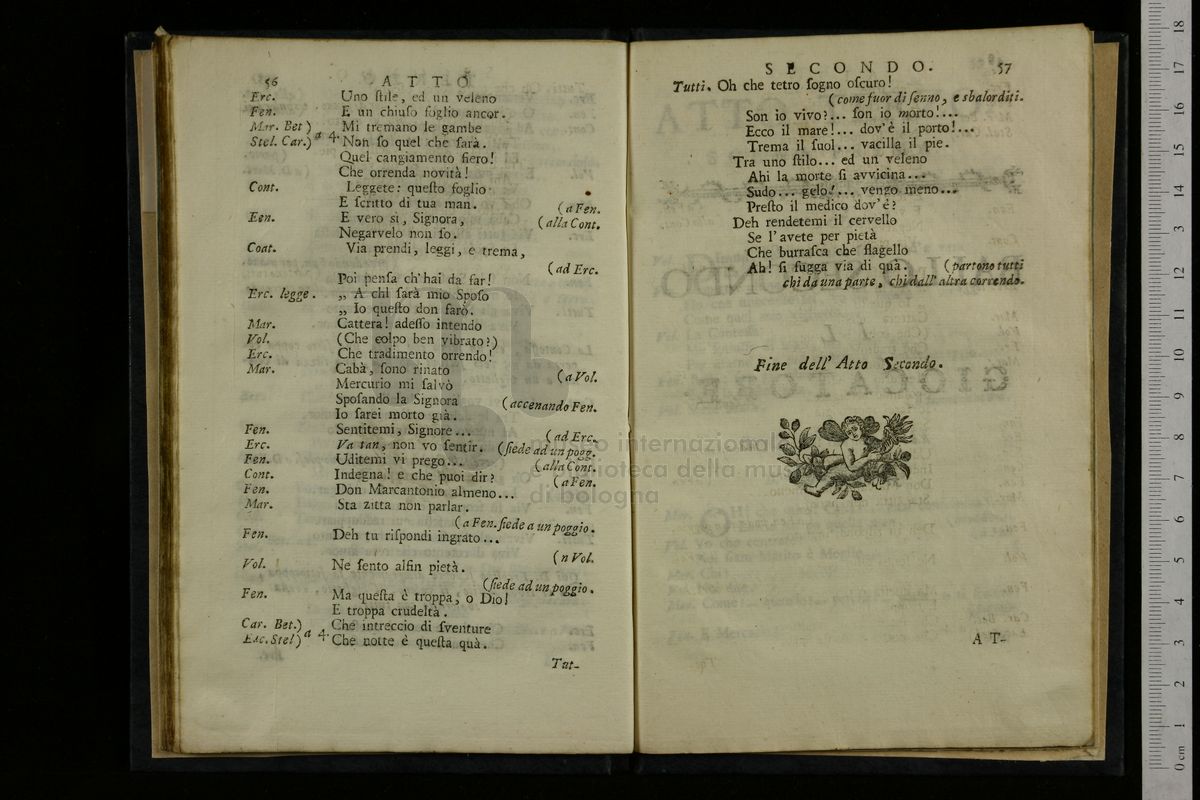 56 ATTO
Erc. Uno ſtile, ed un veleno
Fen. E un chiuſo foglio ancor.
Mar. Bet ) Mi tremano le gambe
Stel. Car.) a 4. Non ſo quel che ſarà.
Quel cangiamento fiero!
Che orrenda novità!
Cont. Leggete: queſto foglio
E ſcritto di tua man. (a Fen.
Een. E vero sì, Signora, (alla Cont.
Negarvelo non ſo.
Coat. Via prendi, leggi, e trema,
(ad Erc.
Poi penſa ch' hai da far!
Erc. legge. „ A chi ſarà mio Spoſo
„ Io queſto don farò.
Mar. Cattera! adeſſo intendo
Vol. (Che colpo ben vibrato?)
Erc. Che tradimento orrendo!
Mar. Cabà, ſono rinato (a Vol.
Mercurio mi ſalvò
Spoſando la Signora (accenando Fen.
Io ſarei morto già.
Fen. Sentitemi, Signore... (ad Erc.
Erc. Va tan, non vo ſentir. (ſiede ad un pogg.
Fen. Uditemi vi prego... (alla Cont.
Cont. Indegna! e che puoi dir? (a Fen.
Fen. Don Marcantonio almeno...
Mar. Sta zitta non parlar.
(a Fen. ſiede a un poggio.
Fen. Deh tu riſpondi ingrato...
(n Vol.
Vol. Ne ſento alfin pietà.
(ſiede ad un poggio.
Fen. Ma queſta è troppa, o Dio!
E troppa crudeltà.
Car. Bet.) Che intreccio di ſventure
Stel) a 4. Che notte è queſta quà.
Tut-
SECONDO. 57
Tutti. Oh che tetro ſogno oſcuro!
(come fuor di ſenno, e sbalorditi.
Son io vivo?... ſon io morto!...
Ecco il mare!... dov' è il porto!...
Trema il ſuol... vacilla il pie.
Tra uno ſtilo... ed un veleno
Ahi la morte ſi avvicina...
Sudo... gelo!... vengo meno...
Preſto il medico dov' é?
Deh rendetemi il cervello
Se l' avete per pietà
Che burraſca che flagello
Ah! ſi fugga via di quà. (partono tutti
chi da una parte, chi dall' altra correndo.
Fine dell' Atto Secondo.
AT-
museo internazionale
biblioteca della mus
di bologna
0 cm 1 2 3 4 5 6 7 8 9 10 11 12 13 14 15 16 17 18